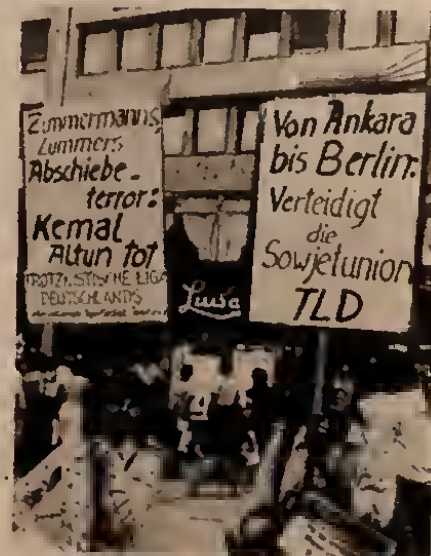 Zimmermanns,
Lummers
Abschiebe-
terror:
Kemal
Altun tot
TROTZKISTISCHE LIGA
DEUTSCHLANDS
Von Ankara
bis Berlin:
Verteidigt
die
Sowjetunion
TLD
Luisa